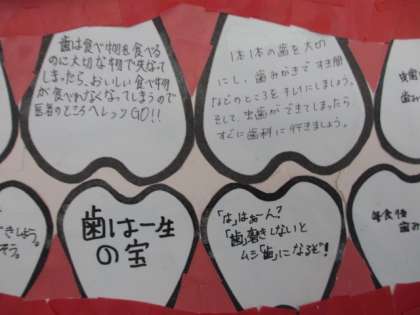 歯は食べ物を食べる
のに大切な物で失なって
しまったら、おいしい食べ物
が食べれなくなってしまうので
医者のところへレッツGO!!
1本1本の歯を大切
にし、歯みがきですき間
などのところをキレイにしましょう。
そして、虫歯ができてしまったら
すぐに歯科に行きましょう。
歯は一生
の宝
「は」はぉーん?
「歯」磨きしないと
ムシ「歯」になるぞ!
きしよう。
そう。
歯み